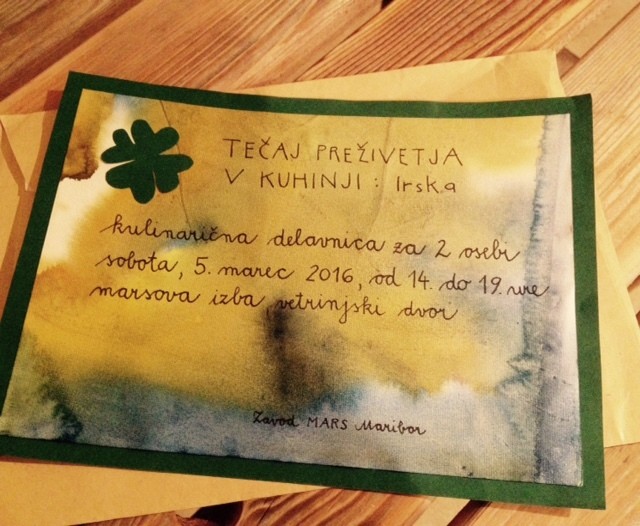 TEČAJ PREŽIVETJA
V KUHINJI : Irska
kulinarična delavnica za 2 osebi
sobota, 5. marec 2016, od 14. do 19. ure
marsova izba, vetrinjski dvor
Zavod MARS Maribor